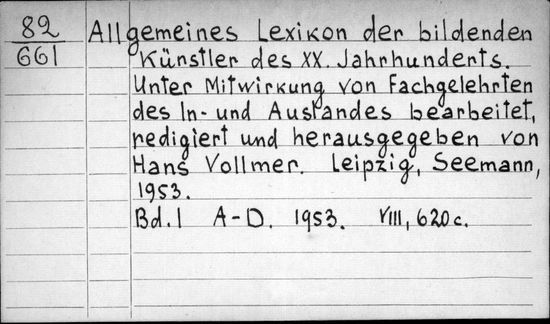 82
661
Allgemeines Lexikon der bildenden
Künstler des XX. Jahrhunderts.
Unter Mitwirkung von Fachgelehrten
des In- und Auslandes bearbeitet,
redigiert und herausgegeben von
Hans Vollmer. Leipzig, Seemann,
1953.
Bd. I A-D. 1953. VIII, 620 c.